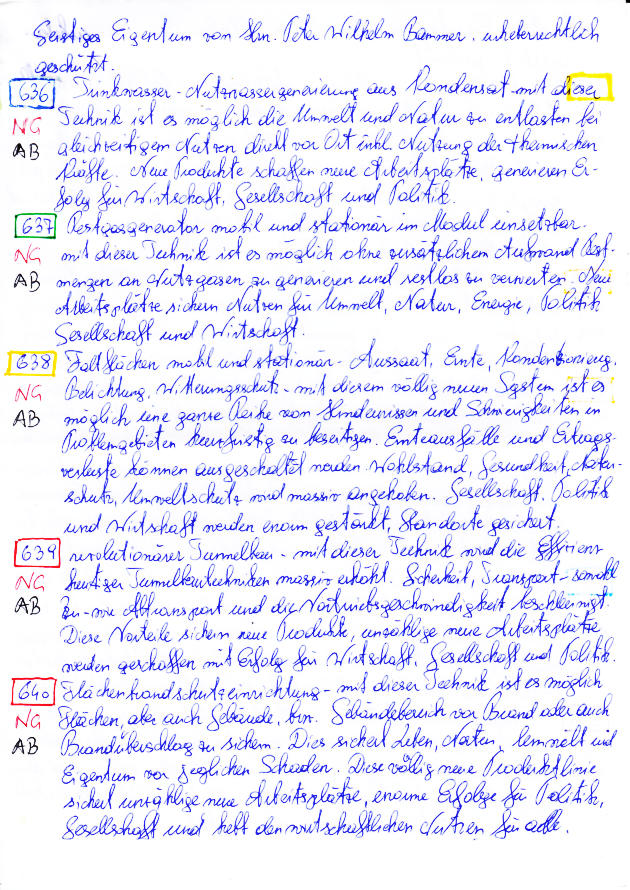 Geistiges Eigentum von Hrn. Peter Wilhelm Bammer. urheberrechtlich
geschützt.
636 Trinkwasser-Nutzwassergenerierung aus Kondensat - mit dieser
NG Technik ist es möglich die Umwelt und Natur zu entlasten bei
AB gleichzeitigem Nutzen direkt vor Ort inkl. Nutzung der thermischen
Kräfte. Neue Produkte schaffen neue Arbeitsplätze, generieren Er-
folg für Wirtschaft, Gesellschaft und Politik.
637 Restgasgenerator mobil und stationär im Modul einsetzbar.
NG mit dieser Technik ist es möglich ohne zusätzlichem Aufwand Rest-
AB mengen an Nutzgasen zu generieren und restlos zu verwerten. Neue
Arbeitsplätze sichern Nutzen für Umwelt, Natur, Energie, Politik
Gesellschaft und Wirtschaft.
638 Faltflächen mobil und stationär - Aussaat, Ernte,
NG Belichtung, Witterungsschutz - mit diesem völlig neuen System ist es
AB möglich eine ganze Reihe von Hindernissen und Schwierigkeiten in
Problemgebieten kurzfristig zu beseitigen. Ernteausfälle und Ertrags-
verluste können ausgeschaltet werden. Wohlstand, Gesundheit, Natur-
schutz, Umweltschutz wird massiv angehoben. Gesellschaft, Politik
und Wirtschaft werden enorm gestärkt, Standorte gesichert.
639 revolutionärer Tunnelbau - mit dieser Technik wird die Effizienz
NG heutiger Tunnelbautechniken massiv erhöht. Sicherheit, Transport - sowohl
AB Zu- wie Abtransport und die Vortriebsgeschwindigkeit beschleunigt.
Diese Vorteile sichern neue Produkte, unzählige neue Arbeitsplätze
werden geschaffen mit Erfolg für Wirtschaft, Gesellschaft und Politik.
640 Flächenbrandschutzeinrichtung - mit dieser Technik ist es möglich
NG Flächen, aber auch Gebäude, bzw. Gebäudebereich vor Brand oder auch
AB Brandüberschlag zu sichern. Dies sichert Leben, Natur, Umwelt und
Eigentum vor jeglichen Schaden. Diese völlig neue Produktlinie
sichert unzählige neue Arbeitsplätze, enorme Erfolge für Politik,
Gesellschaft und hebt den wirtschaftlichen Nutzen für alle.